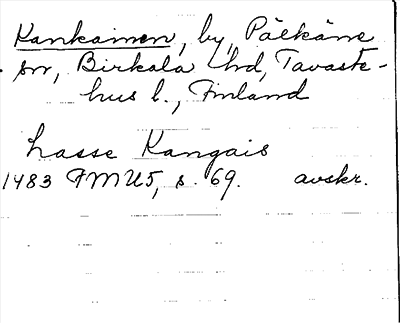 Kankainen, by, Pälkäne
sn, Birkala hd, Tavaste-
hus l., Finland
Lasse Kangais
1483 FMU5, s. 69. avskr.